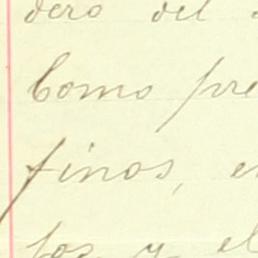 dero del
Como pre
finos, e
los y el